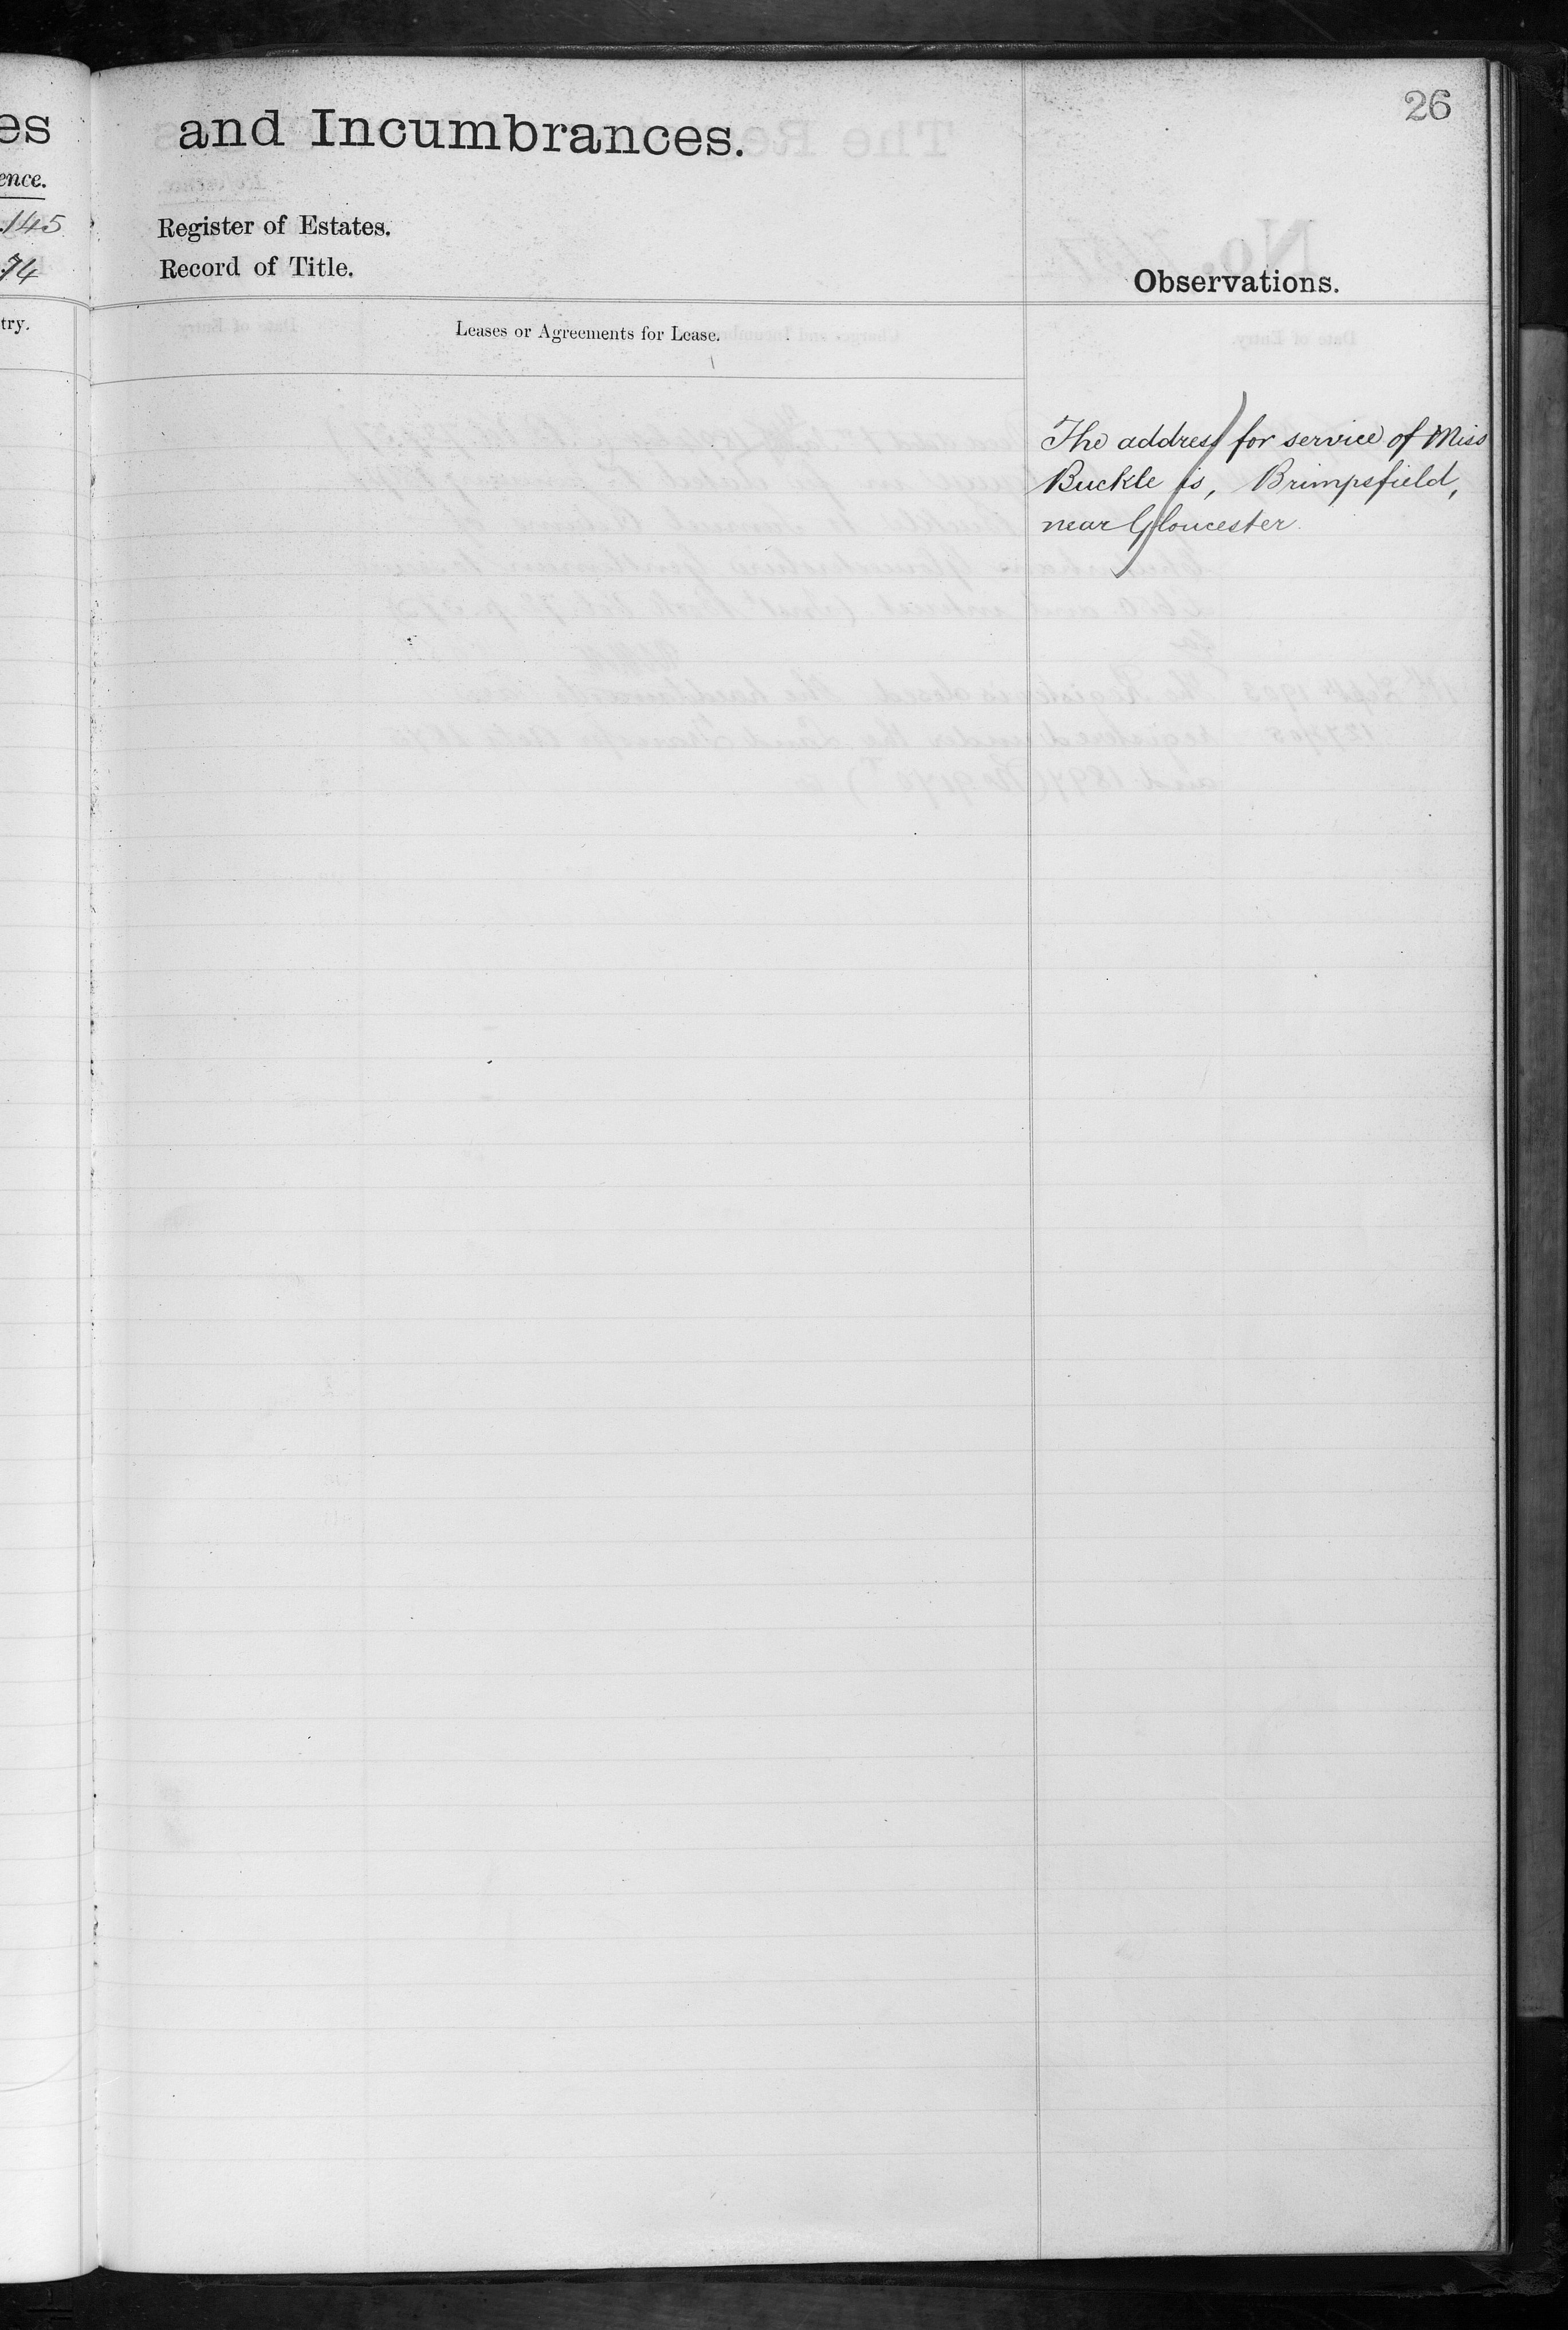 26
es
and Incumbrances.
ence.
145
Register of Estates.
74
Record of Title.
Observations.
try.
Leases or Agreements for Lease.
The address for service of Miss
Buckle is, Brimpsfield,
near Gloucester.